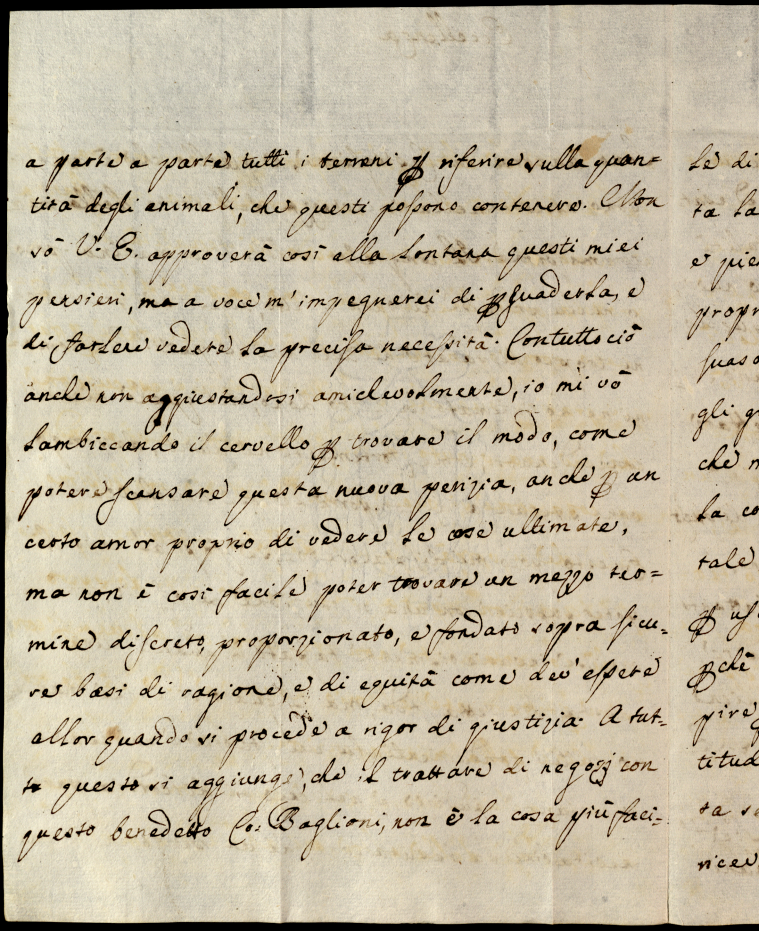 a parte a parte tutti i terreni ꝑ riferire sulla quan=
titá degli animali, che questi possono contenere. Non
só V. E. approverá cosí alla lontana questi miei
pensieri, ma a voce m'impegnerei di ꝑsuaderla, e
di farlene vedere la precisa necessitá. Contuttoció
anche non aggiustandosi amichevolmente, io mi vó
lambiccando il cervello ꝑ trovare il modo, come
potere scansare questa nuova perizia, anche ꝑ un
certo amor proprio di vedere le cose ultimate,
ma non é cosí facile poter trovare un mezzo ter=
mine discreto, proporzionato, e fondato sopra sicu=
re basi di ragione, e di equitá come dev'essere
allor quando si procede a rigor di giustizia. A tut=
to questo si aggiunge, che il trattare di negozj con
questo benedetto Co: Baglioni, non é la cosa piú faci=
le di
ta la
e pie
propr
suas
gli g
che n
la co
tale
ꝑ us
ꝑché
pire
titud
ta s
ricev